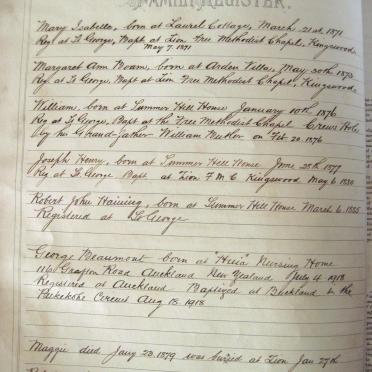 FAMILY REGISTER.
Mary Isabella, born at Laurel Cottage, March 21st 1871
Regd at St George, Bapt at Zion Free Methodist Chapel, Kingswood
May 7. 1871
Margaret Ann Noam, born at Arden Villa, May 30th 1873
Reg at St George, Bapt at Zion Free Methodist Chapel, Kingswood.
William, born at Summer Hill House January 10th 1876
Reg at St George, Bapt at the Free Methodist Chapel Crews Hole
by his Grand-father William Butler on Feb 20. 1876
Joseph Henry, born at Summer Hill House June 28th 1877
Reg at St George Bapt at Zion F M C Kingswood May 6 1880
Robert John Haining, born at Summer Hill House March 6. 1885
Registered at St George
George Beaumont born at "Huia" Nursing Home
Grafton Road Auckland New Zealand July 4 1918
Registered at Auckland Baptized at Buckland in the
Pukekohe Circuit Aug 18 1918
Maggie died Jany 23. 1879 was buried at Zion Jan 27th